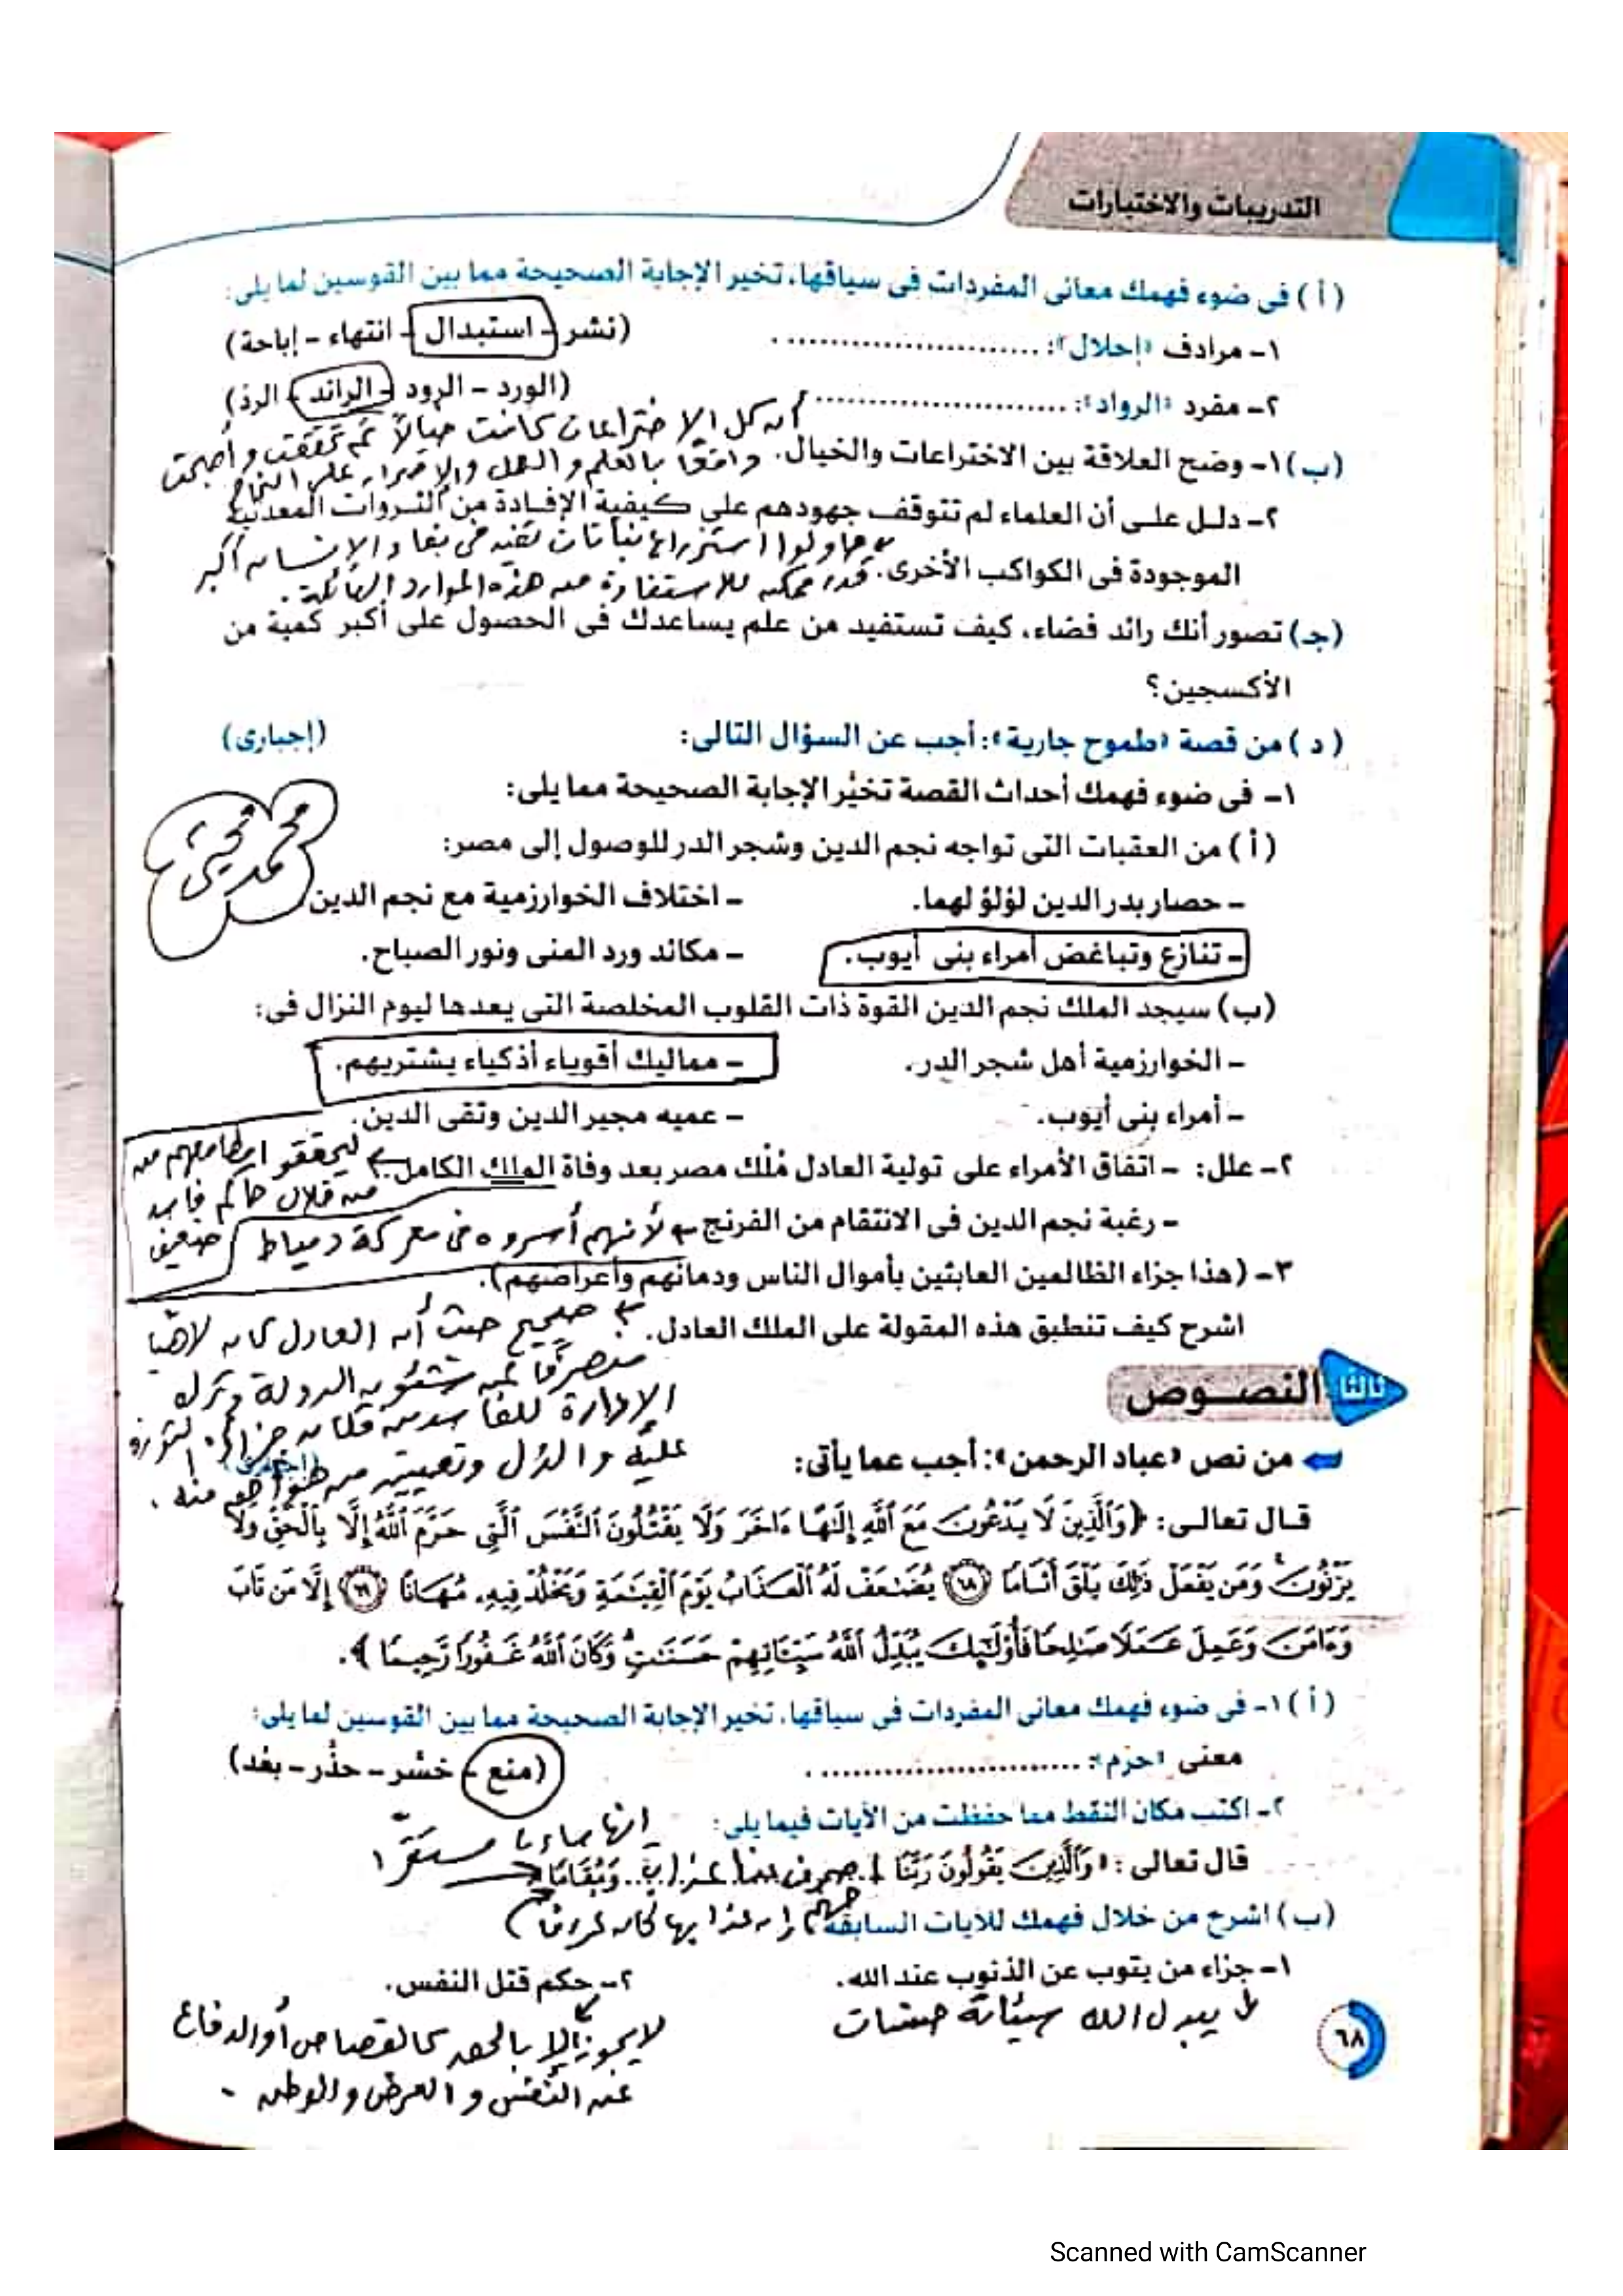 التدريبات والاختبارات
(أ) فى ضوء فهمك معانى المفردات فى سياقها، تخير الإجابة الصحيحة مما بين القوسين لما يلى:
١- مرادف «إحلال»: .............................. (نشر - استبدال - انتهاء - إباحة)
٢- مفرد «الرواد»: .............................. (الورد - الرود - الرائد - الرد)
أن كل الاختراعات كانت خيالاً ثم تحققت وأصبحت
(ب) ١- وضح العلاقة بين الاختراعات والخيال. واقعًا بالعلم والعمل والإصرار على النجاح
٢- دلل على أن العلماء لم تتوقف جهودهم على كيفية الإفادة من الثروات المعدنية
حاولوا استزراع نباتات تفيد فى بقاء الإنسان أكبر
الموجودة فى الكواكب الأخرى. قدر ممكن للاستفادة من هذه الموارد الهائلة.
(جـ) تصور أنك رائد فضاء، كيف تستفيد من علم يساعدك فى الحصول على أكبر كمية من
الأكسجين؟
(د) من قصة «طموح جارية»: أجب عن السؤال التالى: (إجبارى)
١- فى ضوء فهمك أحداث القصة تخيَّر الإجابة الصحيحة مما يلى:
محمد يحيى
(أ) من العقبات التى تواجه نجم الدين وشجر الدر للوصول إلى مصر:
- حصار بدر الدين لؤلؤ لهما. - اختلاف الخوارزمية مع نجم الدين
- تنازع وتباغض أمراء بنى أيوب. - مكائد ورد المنى ونور الصباح.
(ب) سيجد الملك نجم الدين القوة ذات القلوب المخلصة التى يعدها ليوم النزال فى:
- الخوارزمية أهل شجر الدر. - مماليك أقوياء أذكياء يشتريهم.
- أمراء بنى أيوب. - عميه مجير الدين وتقى الدين.
٢- علل: - اتفاق الأمراء على تولية العادل مُلْك مصر بعد وفاة الملك الكامل. ليحققو اطماعهم من
من خلال حاكم فاسد
- رغبة نجم الدين فى الانتقام من الفرنج لأنهم أسروه فى معركة دمياط ضعيف
٣- (هذا جزاء الظالمين العابثين بأموال الناس ودمائهم وأعراضهم).
اشرح كيف تنطبق هذه المقولة على الملك العادل. صحيح حيث أن العادل كان لاهيًا
منصرفًا عن شئون الدولة وترك
الإدارة للفاسدين فكان جزاؤه الثورة
عليه والعزل وتعيين
ثالثا النصوص
من نص «عباد الرحمن»: أجب عما يأتى:
قال تعالى: ﴿وَٱلَّذِينَ لَا يَدْعُونَ مَعَ ٱللَّهِ إِلَٰهًا ءَاخَرَ وَلَا يَقْتُلُونَ ٱلنَّفْسَ ٱلَّتِى حَرَّمَ ٱللَّهُ إِلَّا بِٱلْحَقِّ وَلَا
يَزْنُونَ وَمَن يَفْعَلْ ذَٰلِكَ يَلْقَ أَثَامًا ۝٦٨ يُضَٰعَفْ لَهُ ٱلْعَذَابُ يَوْمَ ٱلْقِيَٰمَةِ وَيَخْلُدْ فِيهِۦ مُهَانًا ۝٦٩ إِلَّا مَن تَابَ
وَءَامَنَ وَعَمِلَ عَمَلًا صَٰلِحًا فَأُو۟لَٰٓئِكَ يُبَدِّلُ ٱللَّهُ سَيِّـَٔاتِهِمْ حَسَنَٰتٍ وَكَانَ ٱللَّهُ غَفُورًا رَّحِيمًا﴾.
(أ) ١- فى ضوء فهمك معانى المفردات فى سياقها، تخير الإجابة الصحيحة مما بين القوسين لما يلى:
معنى «حرَّم»: .............................. (منع - خسَّر - حذَّر - بعَّد)
٢- اكتب مكان النقط مما حفظت من الآيات فيما يلى:
إنها ساءت مستقرًا
قال تعالى: «وَٱلَّذِينَ يَقُولُونَ رَبَّنَا اصرف عنا عذاب وَمُقَامًا»
جهنم إن عذابها كان غرامًا
(ب) اشرح من خلال فهمك للآيات السابقة
١- جزاء من يتوب عن الذنوب عند الله. ٢- حكم قتل النفس.
يبدل الله سيئاته حسنات
لا يجوز إلا بالحق كالقصاص أو الدفاع
عن النفس والعرض والوطن.
٦٨
Scanned with CamScanner